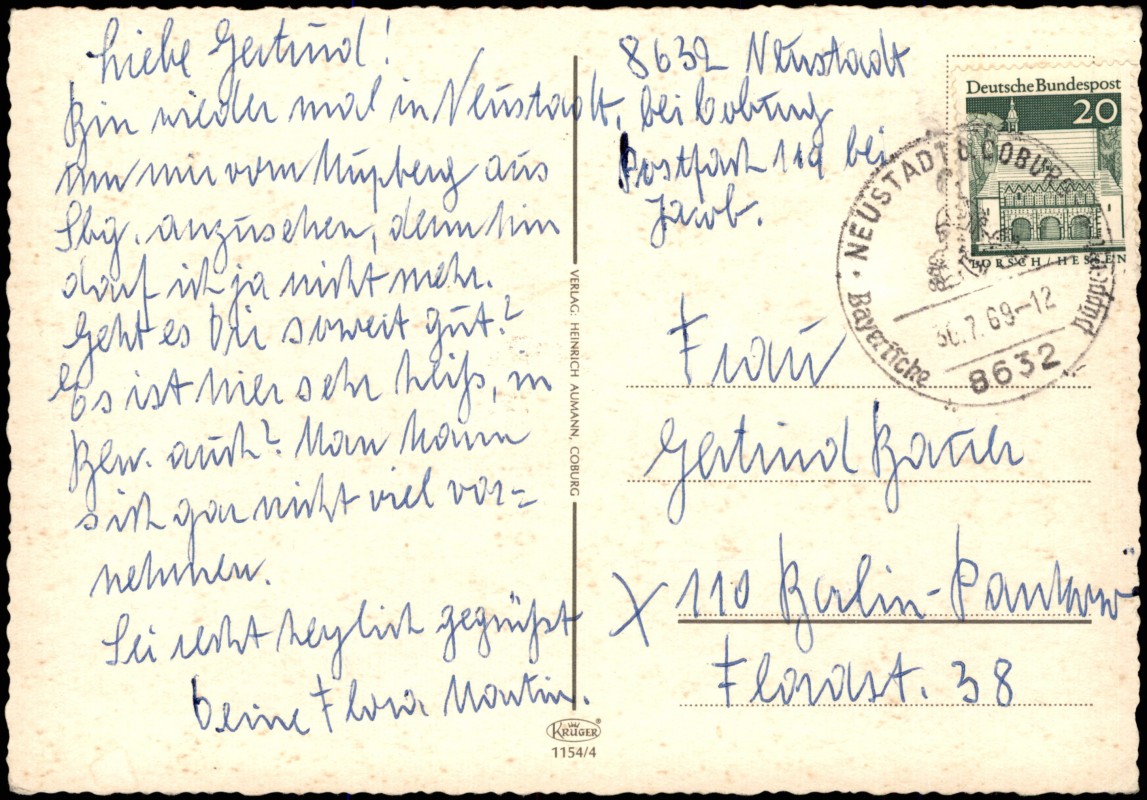 Liebe Gertrud!
Bin wieder mal in Neustadt,
um mir vom Mupberg aus
Sbg. anzusehen, denn hin
darf ich ja nicht mehr.
Geht es Dir soweit gut?
Es ist hier sehr heiß, in
Bln. auch? Man kann
sich gar nicht viel vor=
nehmen.
Sei recht herzlich gegrüßt
Deine Flora Martin.
VERLAG: HEINRICH AUMANN, COBURG
KRÜGER
1154/4
8632 Neustadt
bei Coburg
Postfach 119 bei
Jacob.
Deutsche Bundespost
20
LORSCH/HESSEN
NEUSTADT B. COBURG
30.7.69-12
8632
Bayerische Puppenstadt
Frau
Gertrud Bauer
X 110 Berlin-Pankow
Florast. 38